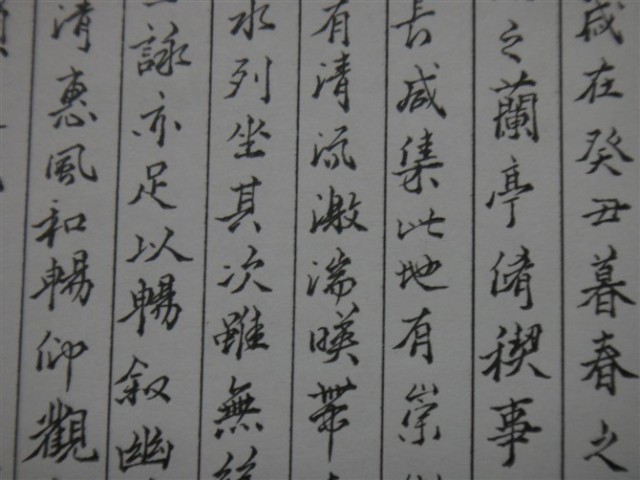 歲在癸丑暮春之
之蘭亭脩稧事
長咸集此地有崇
有清流激湍暎帶
水列坐其次雖無絲
詠亦足以暢叙幽
清惠風和暢仰觀